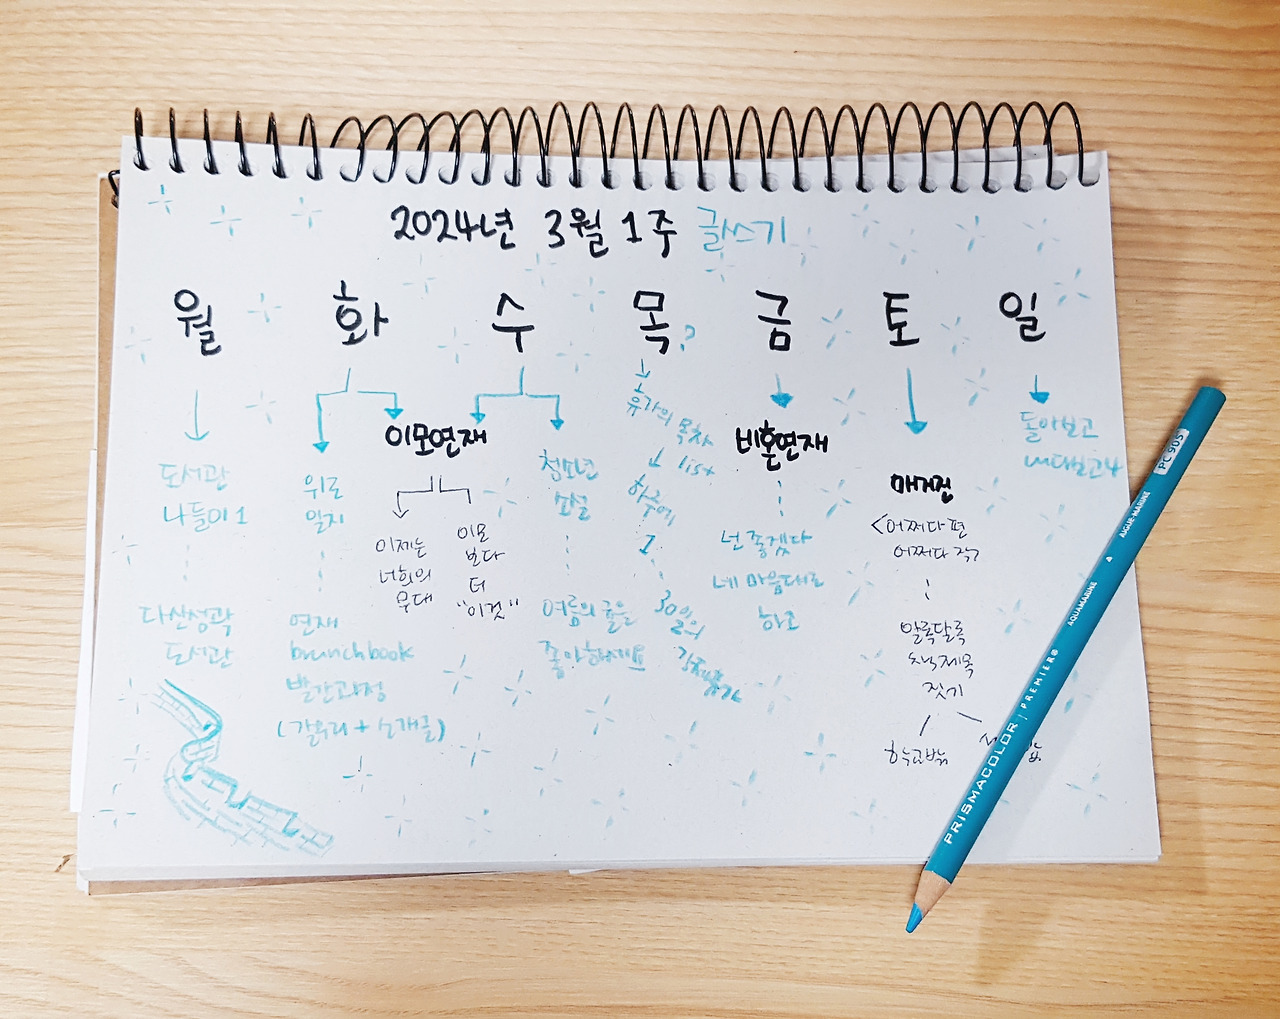 2024년 3월 1주 글쓰기
월 화 수 목? 금 토 일
도서관
나들이 1
다산성곽
도서관
위로
일지
연재
brunchbook
발간과정
(갈무리 + 소개글)
이모연재
이제는
너희의
무대
이모
보다
더
"이것"
청소년
소설
여름의 귤을
좋아하세요
육가의 목차
list
하루에
1
30일의
비혼연재
넌 좋겠다
네 마음대로
하고
매거진
<어쩌다 편
어쩌다 작>
알록달록
소식제목
짓기
학교밖
돌아보고
내다보고
PRISMACOLOR | PREMIER®
AQUAMARINE
AIGUE-MARINE
PC 905